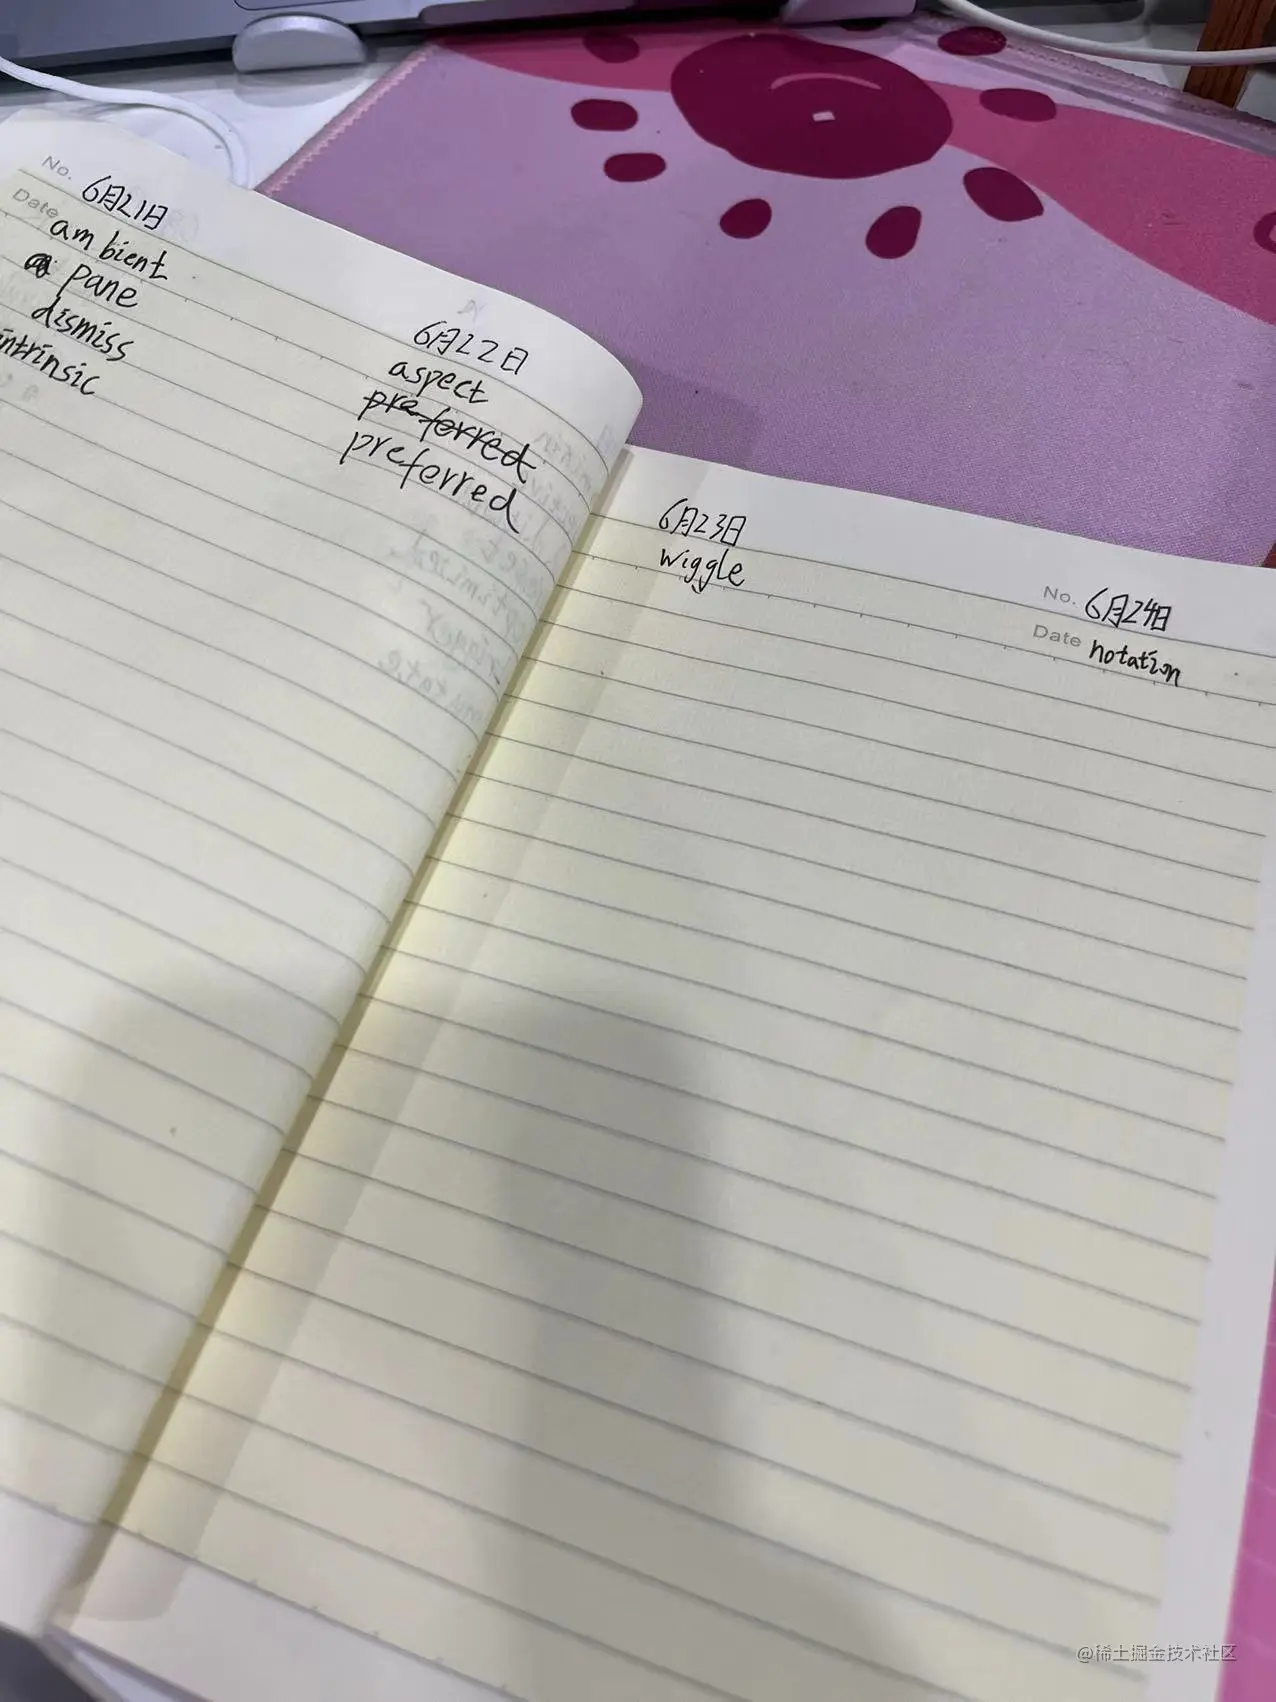 No.
Date
6月21日
ambient
pane
dismiss
intrinsic
6月22日
aspect
preferred
preferred
6月23日
wiggle
No.
Date
6月24日
notation
@稀土掘金技术社区